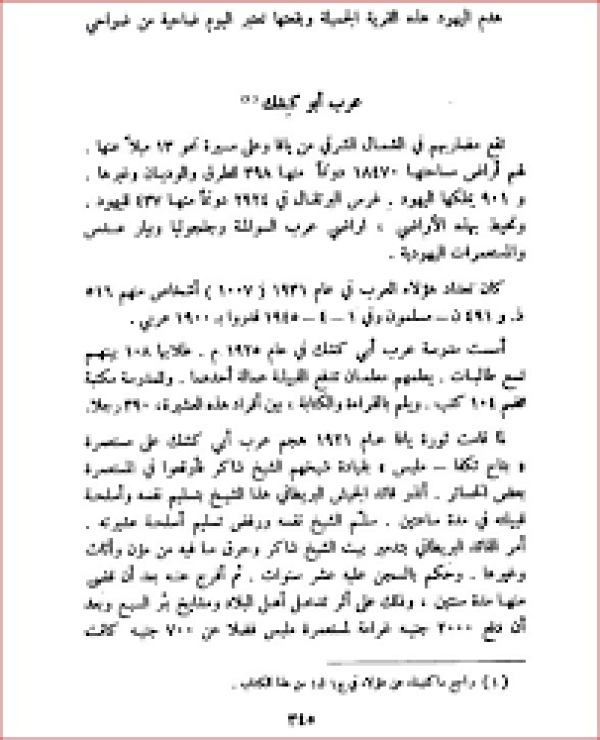 هدم اليهود هذه القرية الجميلة وبقعتها تعتبر اليوم ضاحية من ضواحي
عرب أبو كشك (١)
تقع مضاربهم في الشمال الشرقي من يافا وعلى مسيرة نحو ١٣ ميلاً عنها .
لهم أراضي مساحتها ١٨٤٧٠ دونماً منها ٣٩٨ للطرق والوديان وغيرها .
و ٩٠١ يملكها اليهود . غرس البرتقال في ٢٩٢٤ دونماً منها ٤٣٧ لليهود .
وتحيط بهذه الأراضي ، اراضي عرب السوالمة وجلجوليا وبيار عدس
والمستعمرات اليهودية .
كان تعداد هؤلاء العرب في عام ١٩٣١ ( ١٠٠٧ ) أشخاص منهم ٥١٦
ذ. و ٤٩١ ن – مسلمون وفي ١ – ٤ – ١٩٤٥ قدروا بـ ١٩٠٠ عربي .
أسست مدرسة عرب أبي كشك في عام ١٩٢٥ م . طلابها ١٠٨ بينهم
تسع طالبات . يعلمهم معلمان تدفع القبيلة عمالة أحدهما . وللمدرسة مكتبة
تضم ١٠٤ كتب . ويلم بالقراءة والكتابة ، بين أفراد هذه العشيرة، ٣٩٠ رجلا.
لما قامت ثورة يافا عام ١٩٢١ هجم عرب أبي كشك على مستعمرة
« بتاح تكفا – ملبس » بقيادة شيخهم الشيخ شاكر فأوقعوا في المستعمرة
بعض الخسائر . أنذر قائد الجيش البريطاني هذا الشيخ بتسليم نفسه وأسلحة
قبيلته في مدة ساعتين . سلّم الشيخ نفسه ورفض تسليم أسلحة عشيرته .
أمر القائد البريطاني بتدمير بيت الشيخ شاكر وحرق ما فيه من مؤن وأثاث
وغيرها . وحكم بالسجن عليه عشر سنوات . ثم أفرج عنه بعد أن قضى
منها مدة سنتين ، وذلك على أثر تدخل أهل البلاد ومشايخ بئر السبع وبعد
أن دفع ٢٠٠٠ جنيه غرامة لمستعمرة ملبس فضلا عن ٧٠٠ جنيه كانت
(١) راجع ما كتبناه عن هؤلاء في ج١ ق٢ من هذا الكتاب .
٣٤٥